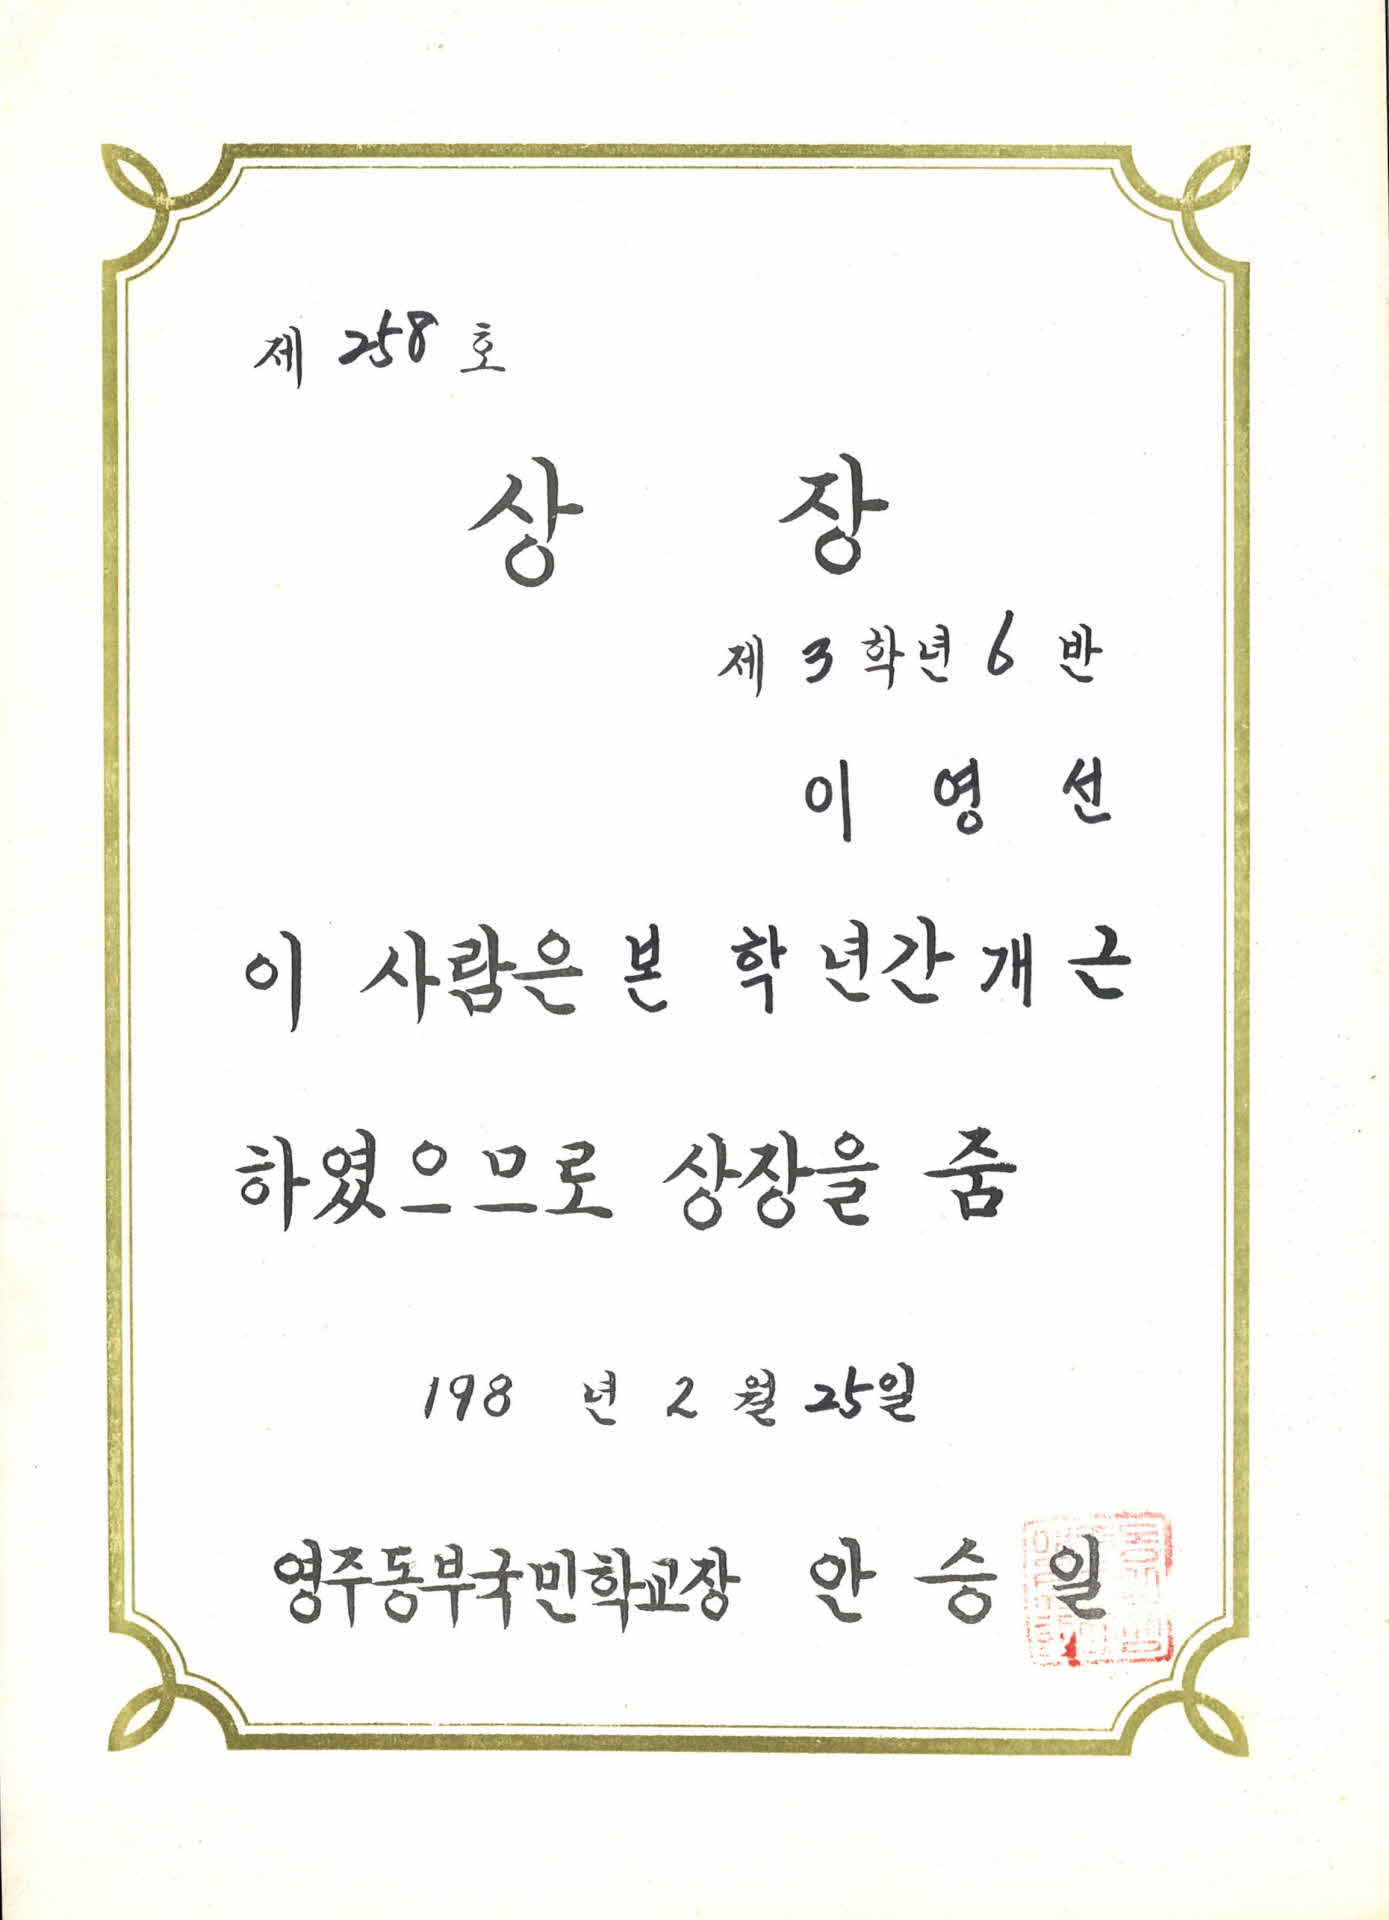 제 258 호
상 장
제 3 학년 6 반
이 영 선
이 사람은 본 학년간 개근
하였으므로 상장을 줌
198 년 2 월 25일
영주동부국민학교장 안 승 일